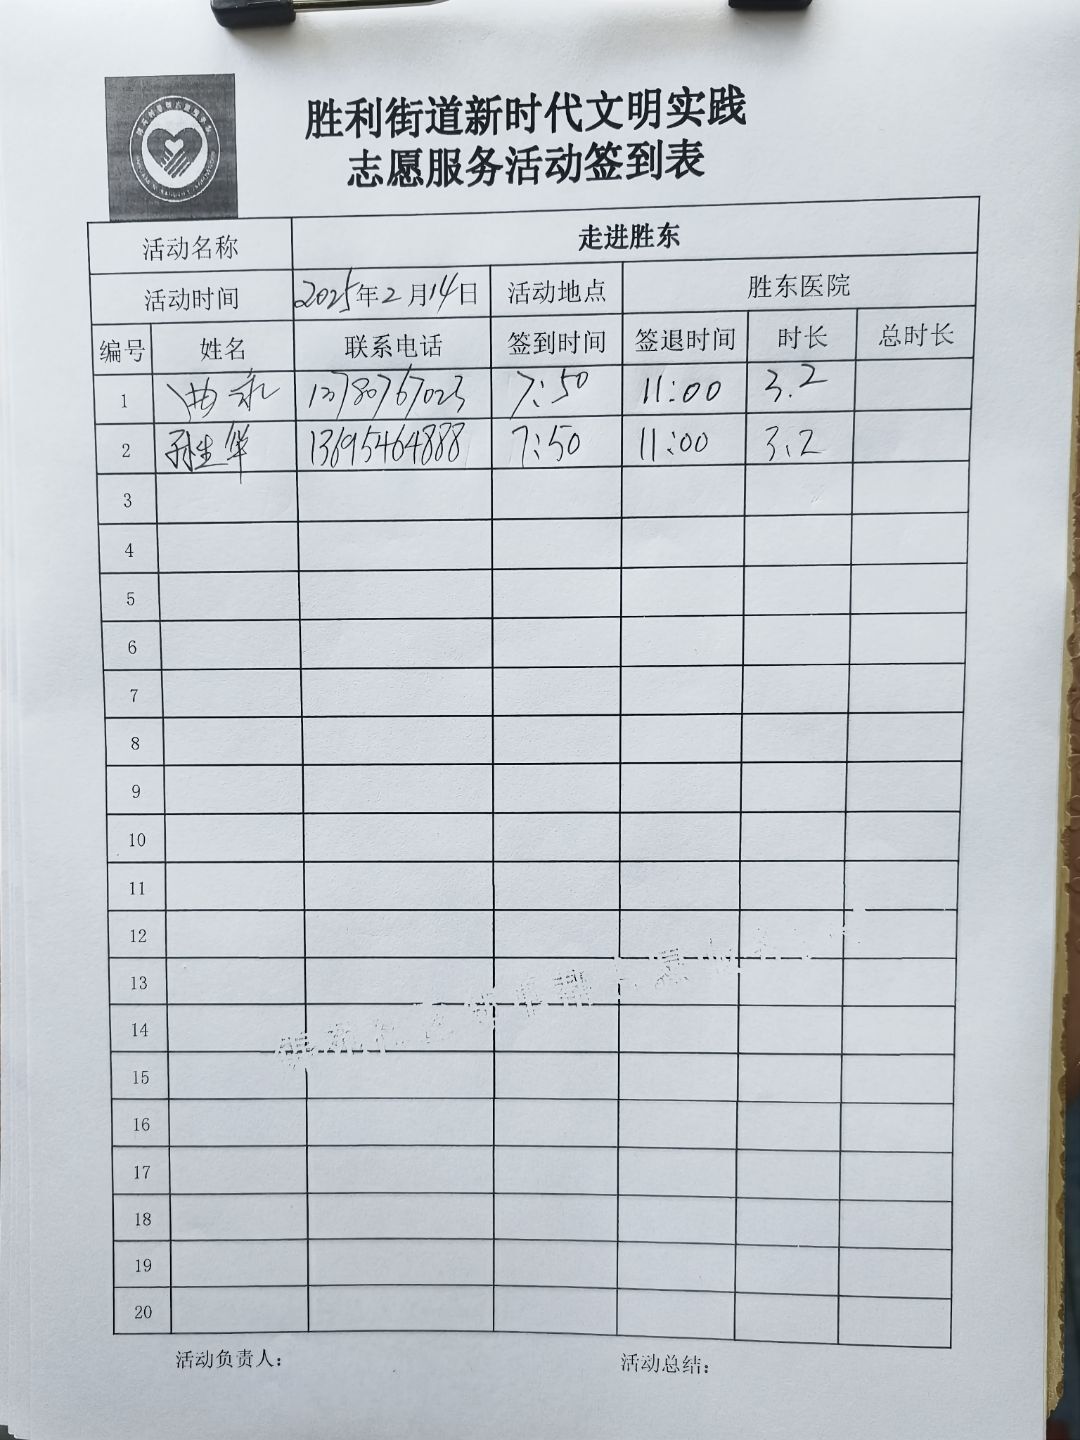 胜利街道新时代文明实践
志愿服务活动签到表
活动名称 走进胜东
活动时间 2025年2月14日 活动地点 胜东医院
编号 姓名 联系电话 签到时间 签退时间 时长 总时长
1 13780767023 7:50 11:00 3.2
2 孙生华 13695464888 7:50 11:00 3.2
3
4
5
6
7
8
9
10
11
12
13
14
15
16
17
18
19
20
活动负责人： 活动总结：